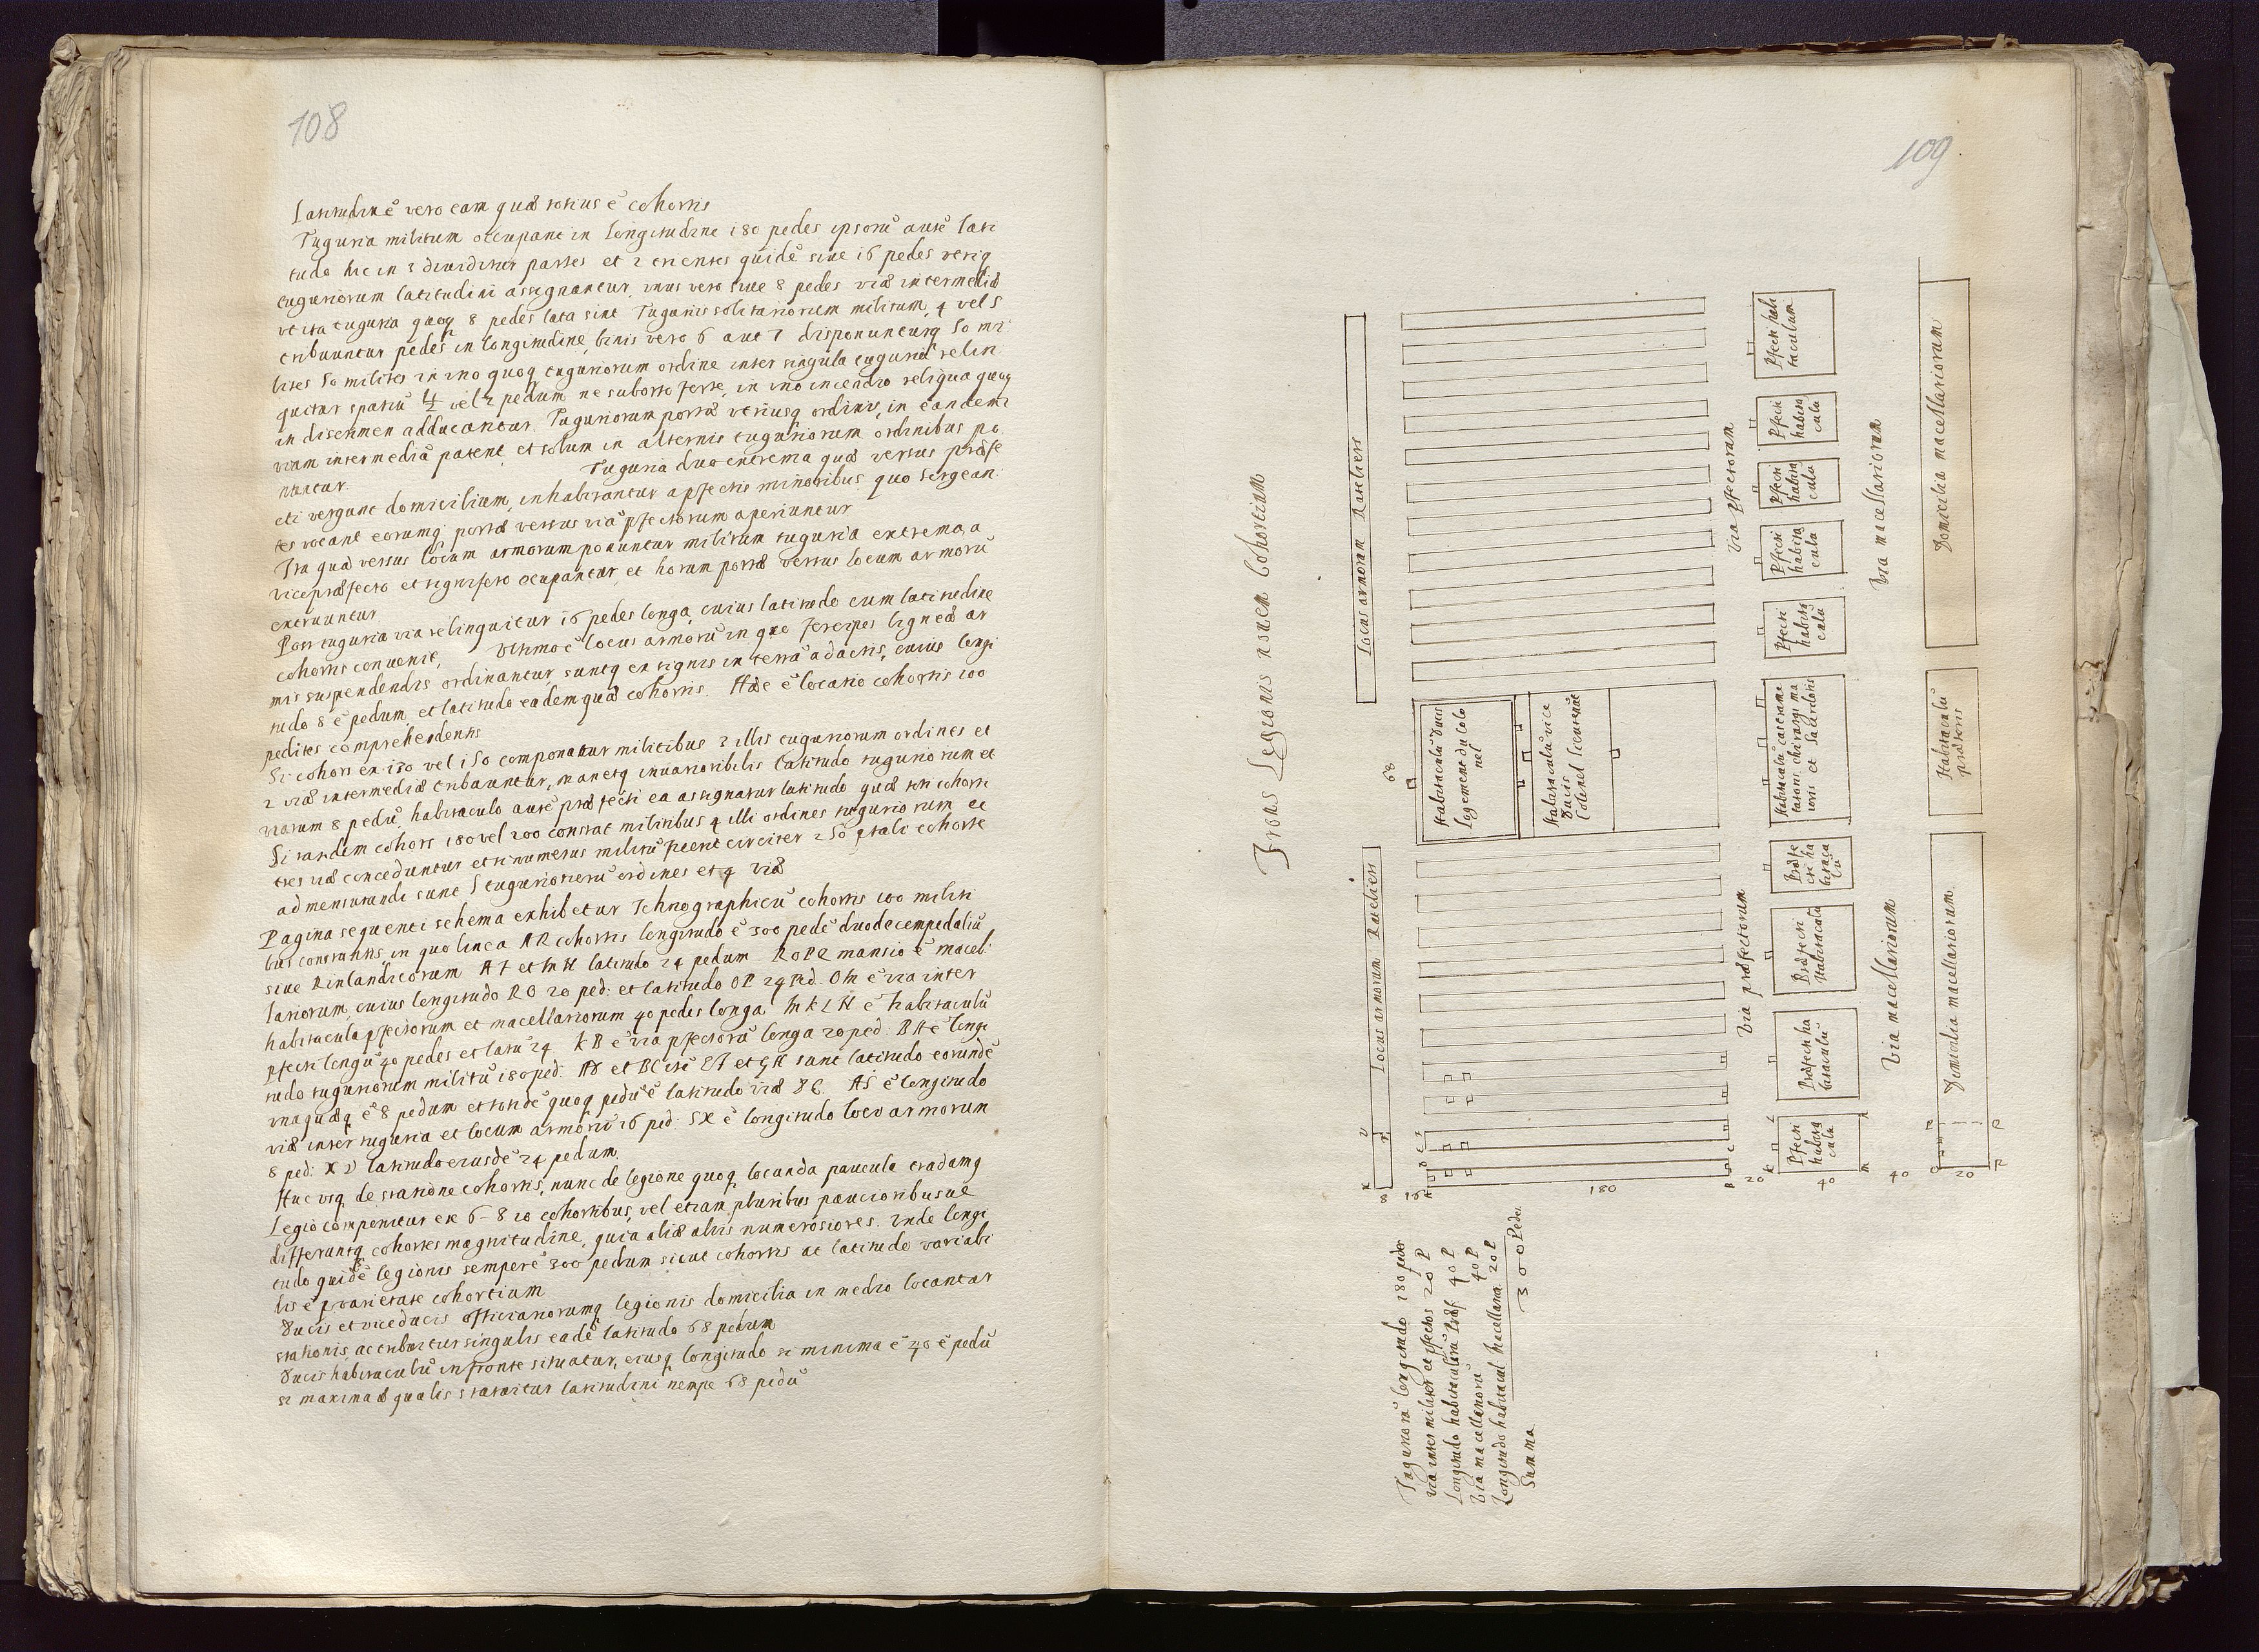 108
Latitudinē vero eam quæ totius ē cohortis
Tuguria militum occupant in longitudine 180 pedes ipsorū autē lati
tudo hic in 3 dividitur partes et 2 trientes quidē sive 16 pedes
tuguriorum latitudini assignantur, unus vero sive 8 pedes viæ intermediæ
ut ita tuguria quoq 8 pedes lata sint Tuguriis solitariorum militum, 4 vel 5
tribuuntur pedes in longitudine, binis vero 6 aut 7 disponunturq 50 mi
lites 50 milites in uno quoq tuguriorum ordine inter singula tuguria relin
quitur spatiū vel 2 pedum ne suborto forte, in uno incendio reliqua quoq
in discrimen adducantur. Tuguriorum portæ utriusq ordinis, in eandem
viam intermediā patent et solum in alternis tuguriorum ordinibus po
nuntur. Tuguria duo extrema quæ versus præfe
cti vergunt domicilium, inhabitantur a pfectis minoribus quo sergean
tes vocant eorumq portæ versus viā pfectorum aperiuntur
Ita quæ versus locum armorum ponuntur militum tuguria extrema, a
vicepræfecto et signifero ocupantur, et horum portæ versus locum armorū
extruuntur.
Post tuguria via relinquitur 16 pedes longa, cuius latitudo cum latitudine
cohortis convenit, Ultimo ē locus armorū in quo ligneæ ar
mis suspendendis ordinantur, suntq ex lignis in terrā adactis, cuius longi
tudo 8 ē pedum et latitudo eadem quæ cohortis. Hæc ē locatio cohortis 100
pedites comprehendentis
Si cohors ex 130 vel 150 componatur militibus 3 illis tuguriorum ordines et
2 viæ intermediæ tribuuntur, manetq invariabilis latitudo tuguriorum et
viarum 8 pedū, habitaculo autē præfecti ea assignatur latitudo quæ toti cohorti
Si tandem cohors 180 vel 200 constat militibus 4 illi ordines tuguriorum et
tres viæ conceduntur et si numerus militū fuerit circiter 250 tali cohorte
admensurandi sunt 5 tuguriorū ordines et 4 viæ
Pagina sequenti schema exhibetur Ichnographicū cohortis 100 militi
bus constantis, in quo linea AR cohortis longitudo ē 300 pedē duodecempedaliū
sive Rinlandicorum AF et MN latitudo 24 pedum ROPQ mansio ē macel
lariorum, cuius longitudo RO 20 ped: et latitudo OP 24 ped. OM ē via inter
habitacula pfectorum et macellariorum 40 pedes longa MKLN ē habitaculū
pfecti longū 40 pedes et latū 24 KB ē via pfectorū longa 20 ped: BA ē longi
tudo tuguriorum militū 180 ped. AD et BC et GH sunt latitudo eorundē
unaquæq ē 8 pedum et totidē quoq pedū ē latitudo viæ DE. AS ē longitudo
viæ inter tuguria et locum armorū 16 ped: SX ē longitudo loci armorum
8 ped: XV latitudo eiusdē 24 pedum.
Huc usq de statione cohortis, nunc de legione quoq locanda paucula tradamq
Legio componitur ex 6-8 10 cohortibus, vel etiam pluribus paucioribusve
differuntq cohortes magnitudine, quia aliæ aliis numerosiores. Inde longi
tudo quidē legionis semper ē 300 pedum sicut cohortis at latitudo variabi
lis ē p varietate cohortium
Ducis et viceducis officiariorumq legionis domicilia in medio locantur
stationis, attribuitur singulis eadē latitudo 68 pedum
Ducis habitaculū in fronte situatur, eiusq longitudo si minima ē 40 ē pedū
si maxima æqualis statuitur latitudini nempe 68 pedū
109
Frons Legionis cohortium
Locus armorum Rateliers
Locus armorum Rateliers
68
Habitaculū Ducis
Logement du Colo
nel
Habitaculū vice
Ducis
Via præfectorum
Via pfectorum
Pfecti
habita
cula
Præfecti ha
bitaculū
Præfecti
Habitacula
Præfe
cti ha
bitacu
lū
Pfecti
habita
culū
Pfecti
habita
cula
Pfecti
habita
cula
Pfecti
habita
cula
Pfecti habi
taculum
Via macellariorum
Via macellariorum
Domicilia macellariorum
Habitaculū
prætoris
Domicilia macellariorum
8
16
180
20
40
40
20
Tuguriorū longitudo 180 pedes
Via inter milites et pfectos 20 P
Longitudo habitaculorū Præf 40 P
Via macellariorū 40 P
Longitudo habitacul macellarior 20 P
Summa 300 Pedes